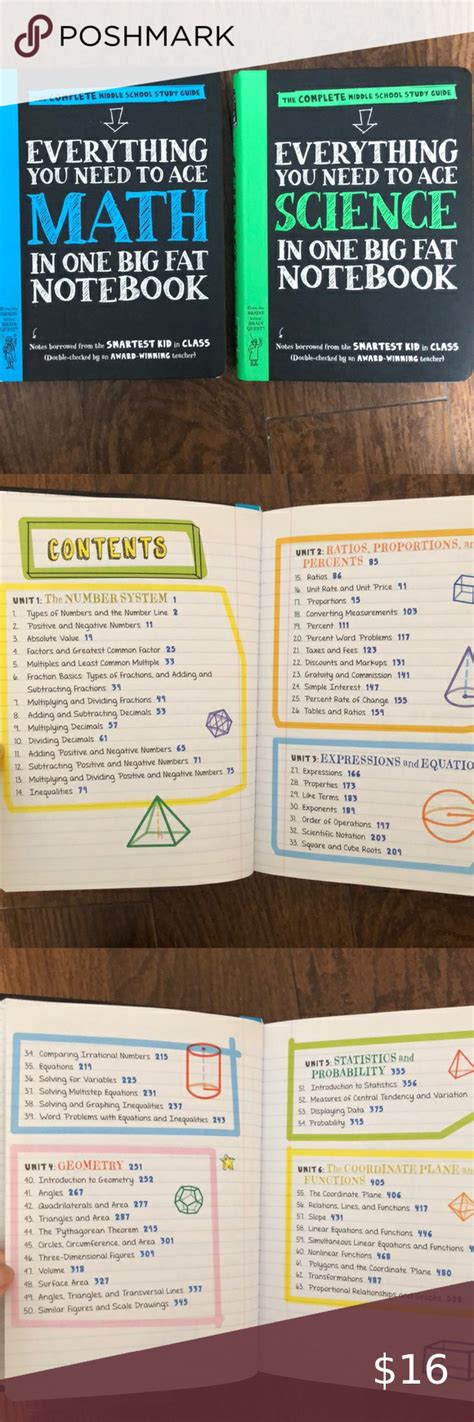 POSHMARK
THE COMPLETE MIDDLE SCHOOL STUDY GUIDE
EVERYTHING
YOU NEED TO ACE
MATH
IN ONE BIG FAT
NOTEBOOK
Notes borrowed from the SMARTEST KID in CLASS
(Double-checked by an AWARD-WINNING teacher)
THE COMPLETE MIDDLE SCHOOL STUDY GUIDE
EVERYTHING
YOU NEED TO ACE
SCIENCE
IN ONE BIG FAT
NOTEBOOK
Notes borrowed from the SMARTEST KID in CLASS
(Double-checked by an AWARD-WINNING teacher)
CONTENTS
UNIT 1: The NUMBER SYSTEM 1
1. Types of Numbers and the Number Line 2
2. Positive and Negative Numbers 11
3. Absolute Value 19
4. Factors and Greatest Common Factor 25
5. Multiples and Least Common Multiple 33
6. Fraction Basics: Types of Fractions, and Adding and
Subtracting Fractions 39
7. Multiplying and Dividing Fractions 49
8. Adding and Subtracting Decimals 53
9. Multiplying Decimals 57
10. Dividing Decimals 61
11. Adding Positive and Negative Numbers 65
12. Subtracting Positive and Negative Numbers 71
13. Multiplying and Dividing Positive and Negative Numbers 75
14. Inequalities 79
UNIT 2: RATIOS, PROPORTIONS, an
PERCENTS 85
15. Ratios 86
16. Unit Rate and Unit Price 91
17. Proportions 95
18. Converting Measurements 103
19. Percent 111
20. Percent Word Problems 117
21. Taxes and Fees 123
22. Discounts and Markups 131
23. Gratuity and Commission 141
24. Simple Interest 147
25. Percent Rate of Change 155
26. Tables and Ratios 159
UNIT 3: EXPRESSIONS and EQUATIO
27. Expressions 166
28. Properties 173
29. Like Terms 183
30. Exponents 189
31. Order of Operations 197
32. Scientific Notation 203
33. Square and Cube Roots 209
34. Comparing Irrational Numbers 215
35. Equations 219
36. Solving for Variables 225
37. Solving Multistep Equations 231
38. Solving and Graphing Inequalities 237
39. Word Problems with Equations and Inequalities 243
UNIT 4: GEOMETRY 251
40. Introduction to Geometry 252
41. Angles 267
42. Quadrilaterals and Area 277
43. Triangles and Area 287
44. The Pythagorean Theorem 295
45. Circles, Circumference, and Area 301
46. Three-Dimensional Figures 309
47. Volume 318
48. Surface Area 327
49. Angles, Triangles, and Transversal Lines 337
50. Similar Figures and Scale Drawings 345
UNIT 5: STATISTICS and
PROBABILITY 355
51. Introduction to Statistics 356
52. Measures of Central Tendency and Variation
53. Displaying Data 375
54. Probability 395
UNIT 6: The COORDINATE PLANE an
FUNCTIONS 405
55. The Coordinate Plane 406
56. Relations, Lines, and Functions 417
57. Slope 431
58. Linear Equations and Functions 446
59. Simultaneous Linear Equations and Functions
60. Nonlinear Functions 468
61. Polygons and the Coordinate Plane 480
62. Transformations 487
63. Proportional Relationships and Graphs
$16